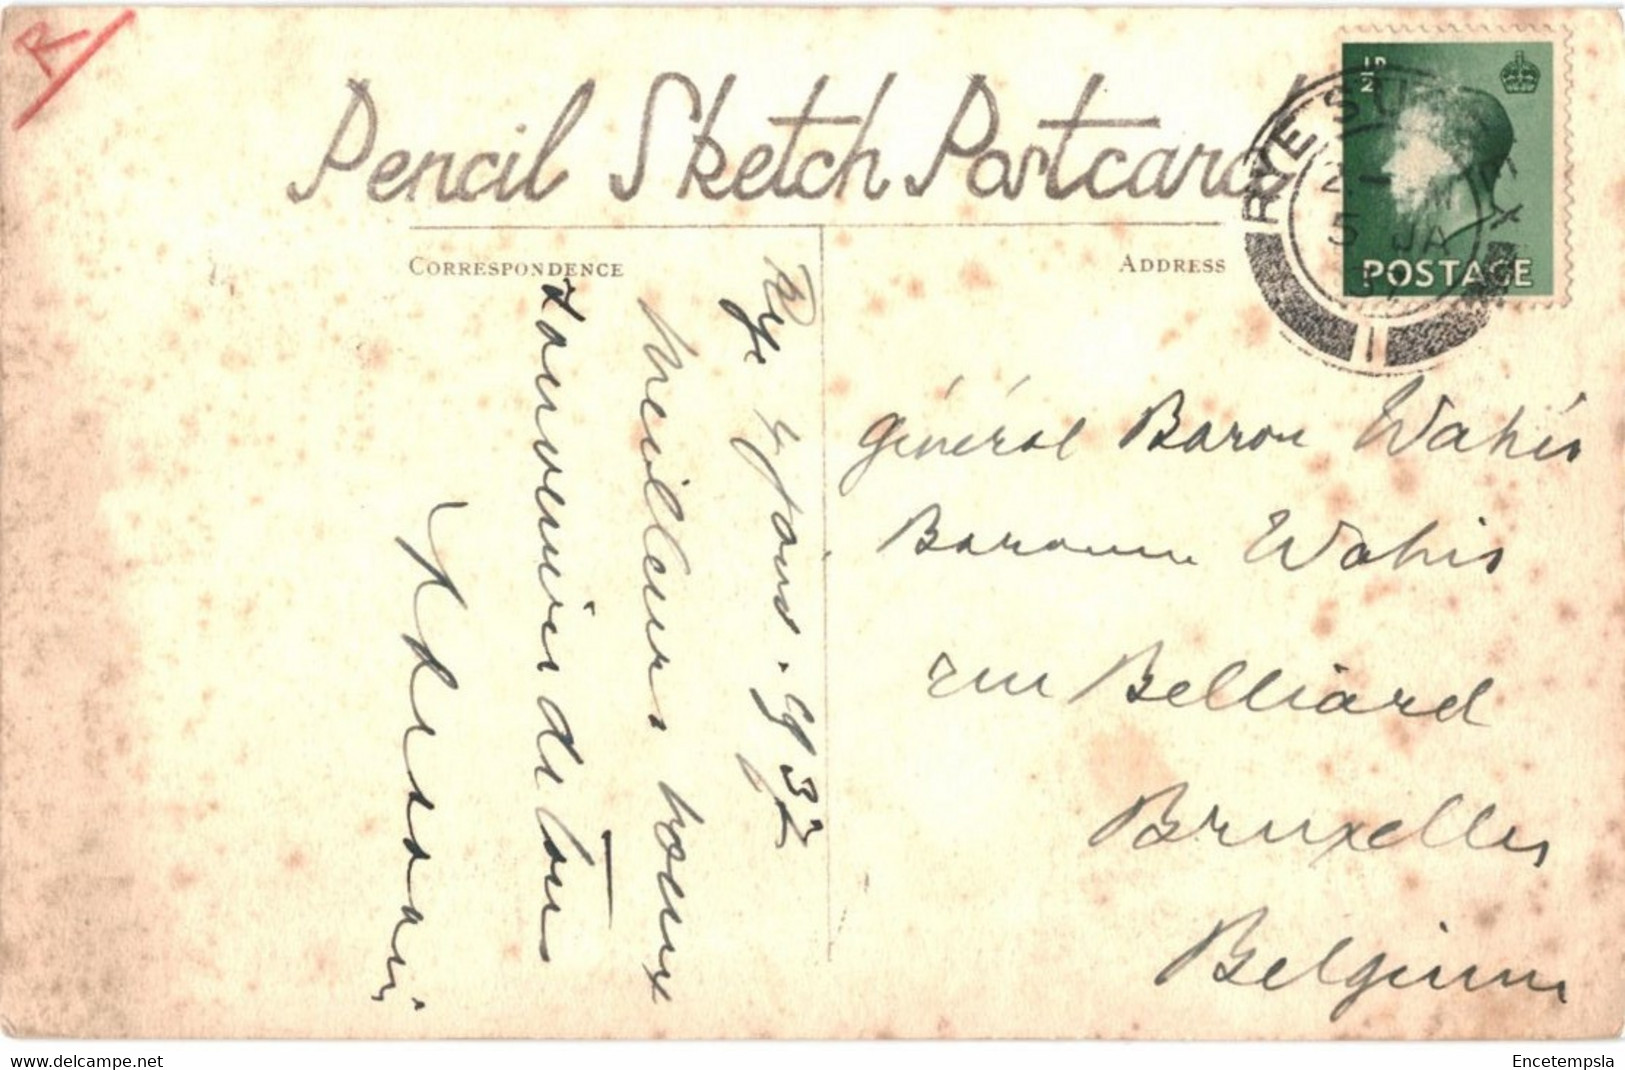 R
Pencil Sketch Postcard
½D
POSTAGE
RYE SUSSEX
5 JA
CORRESPONDENCE
ADDRESS
Rye 4 janv. 1937
Meilleurs voeux
& souvenir de tous
Général Baron Wahis
Baronne Wahis
rue Belliard
Bruxelles
Belgium
www.delcampe.net
Encetempsla